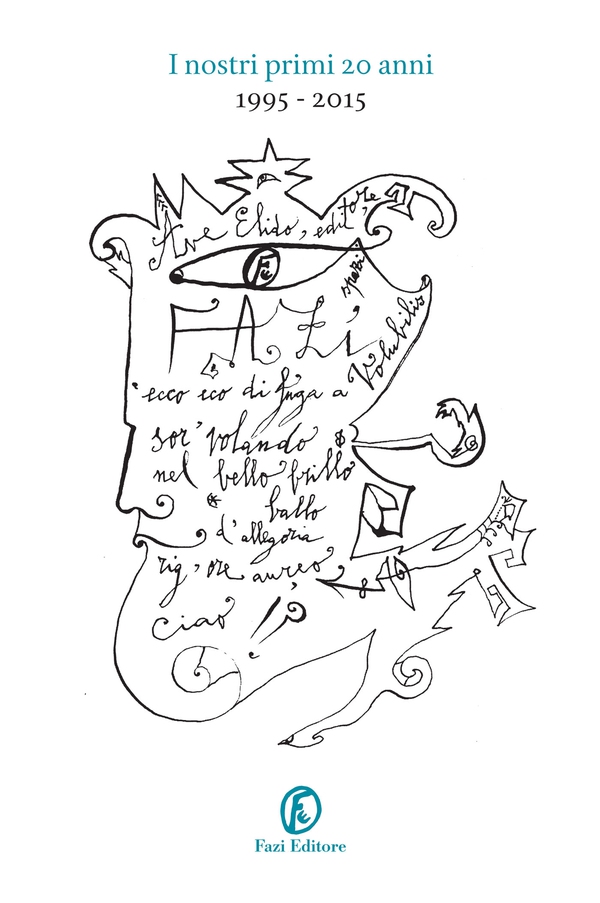 I nostri primi 20 anni
1995 - 2015
Ave Elido, editore,
Fe
spazi
FAZI
Volubilis
ecco eco di fuga a
sor'volando
nel bello brillo
ballo
d'allegoria
rig, ore aureo
ciao !
Fe
Fazi Editore